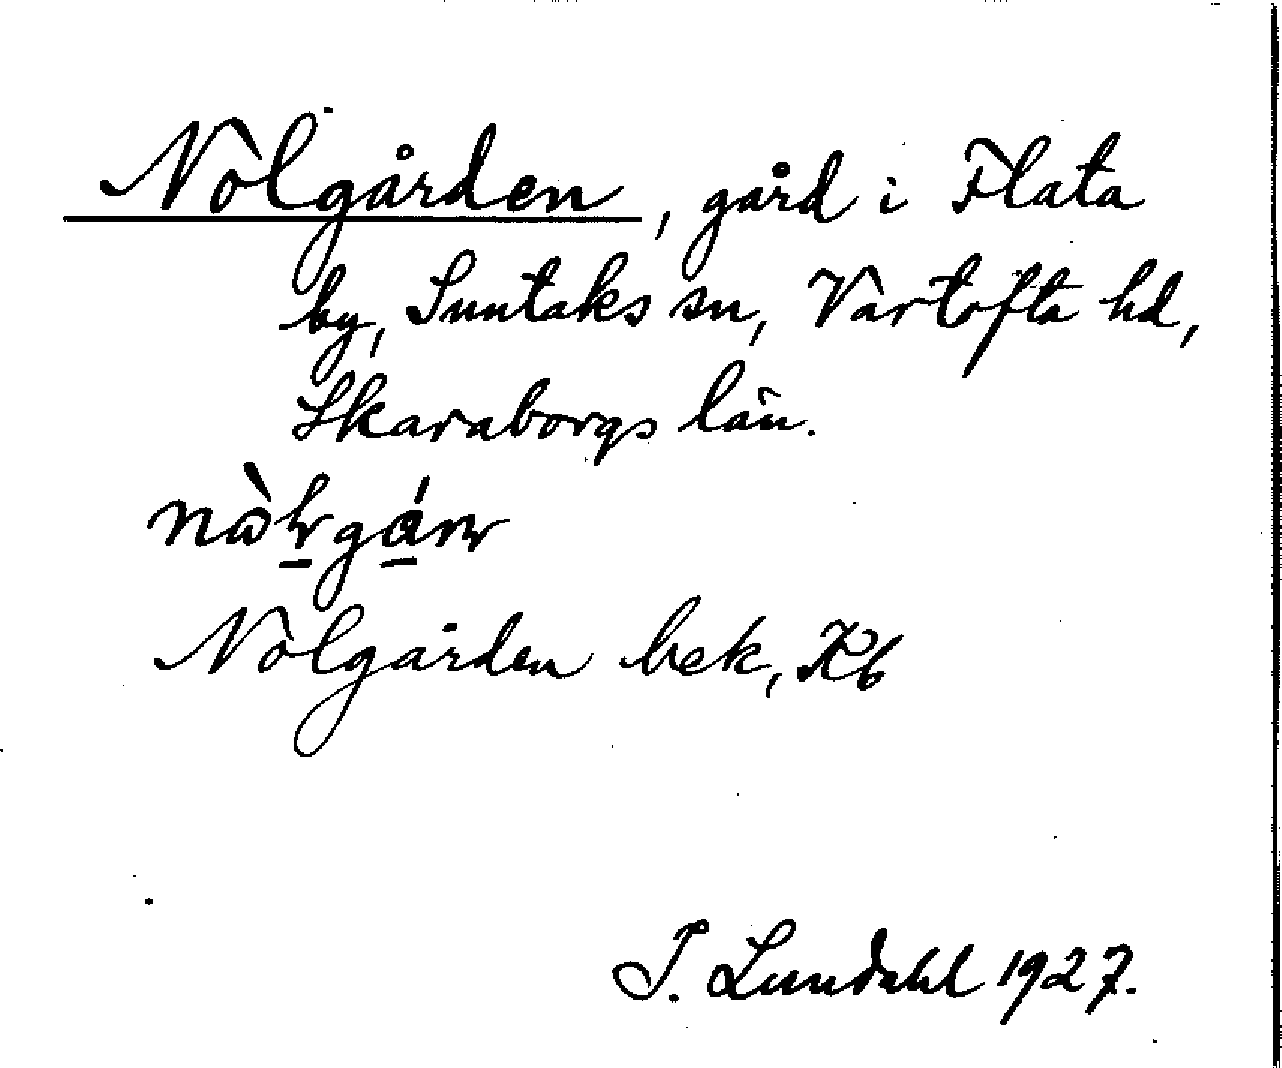 Nolgården, gård i Flata
by, Suntaks sn, Vartofta hd,
Skaraborgs län.
Nolgården bek, Kb
I. Lundahl 1927.